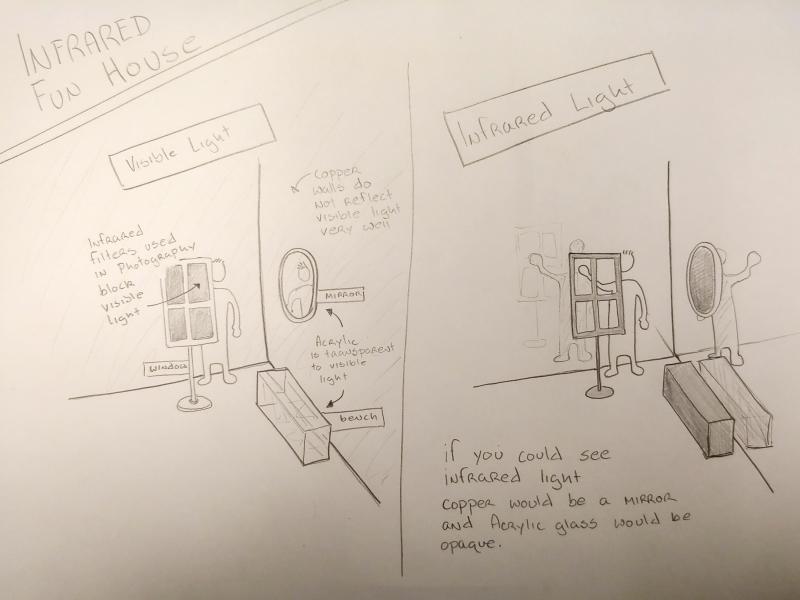 INFRARED
FUN HOUSE
Visible Light
Infrared Light
Copper
walls do
not reflect
visible light
very well
Infrared
filters used
in Photography
block
visible
light
MIRROR
Acrylic
is transparent
to visible
light
WINDOW
bench
if you could see
infrared light
copper would be a MIRROR
and Acrylic glass would be
opaque.